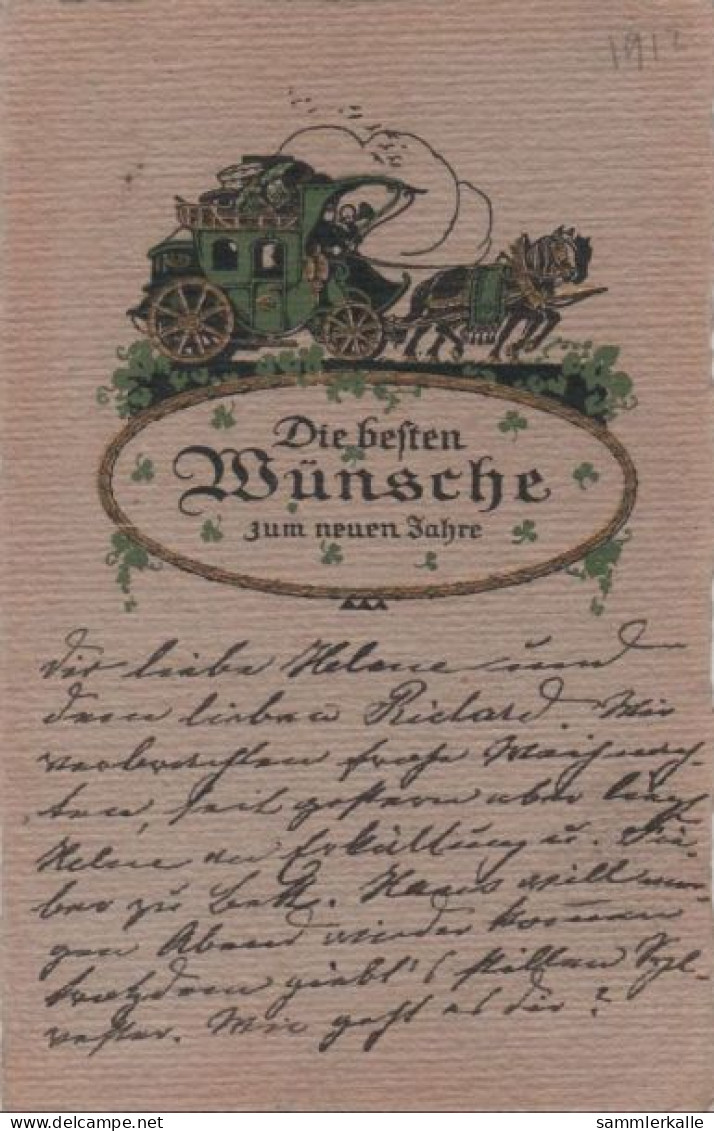 1912
Die besten
Wünsche
zum neuen Jahre
dir liebe Helene und
dem lieben Richard. Wir
verbrachten frohe Weihnach-
ten, seit gestern aber liegt
Helene an Erkältung u. Fie-
ber zu Bett. Hans will mor-
gen Abend wieder kommen
trotzdem giebt's stillen Syl-
vester. Wie geht es dir?
sammlerkalle